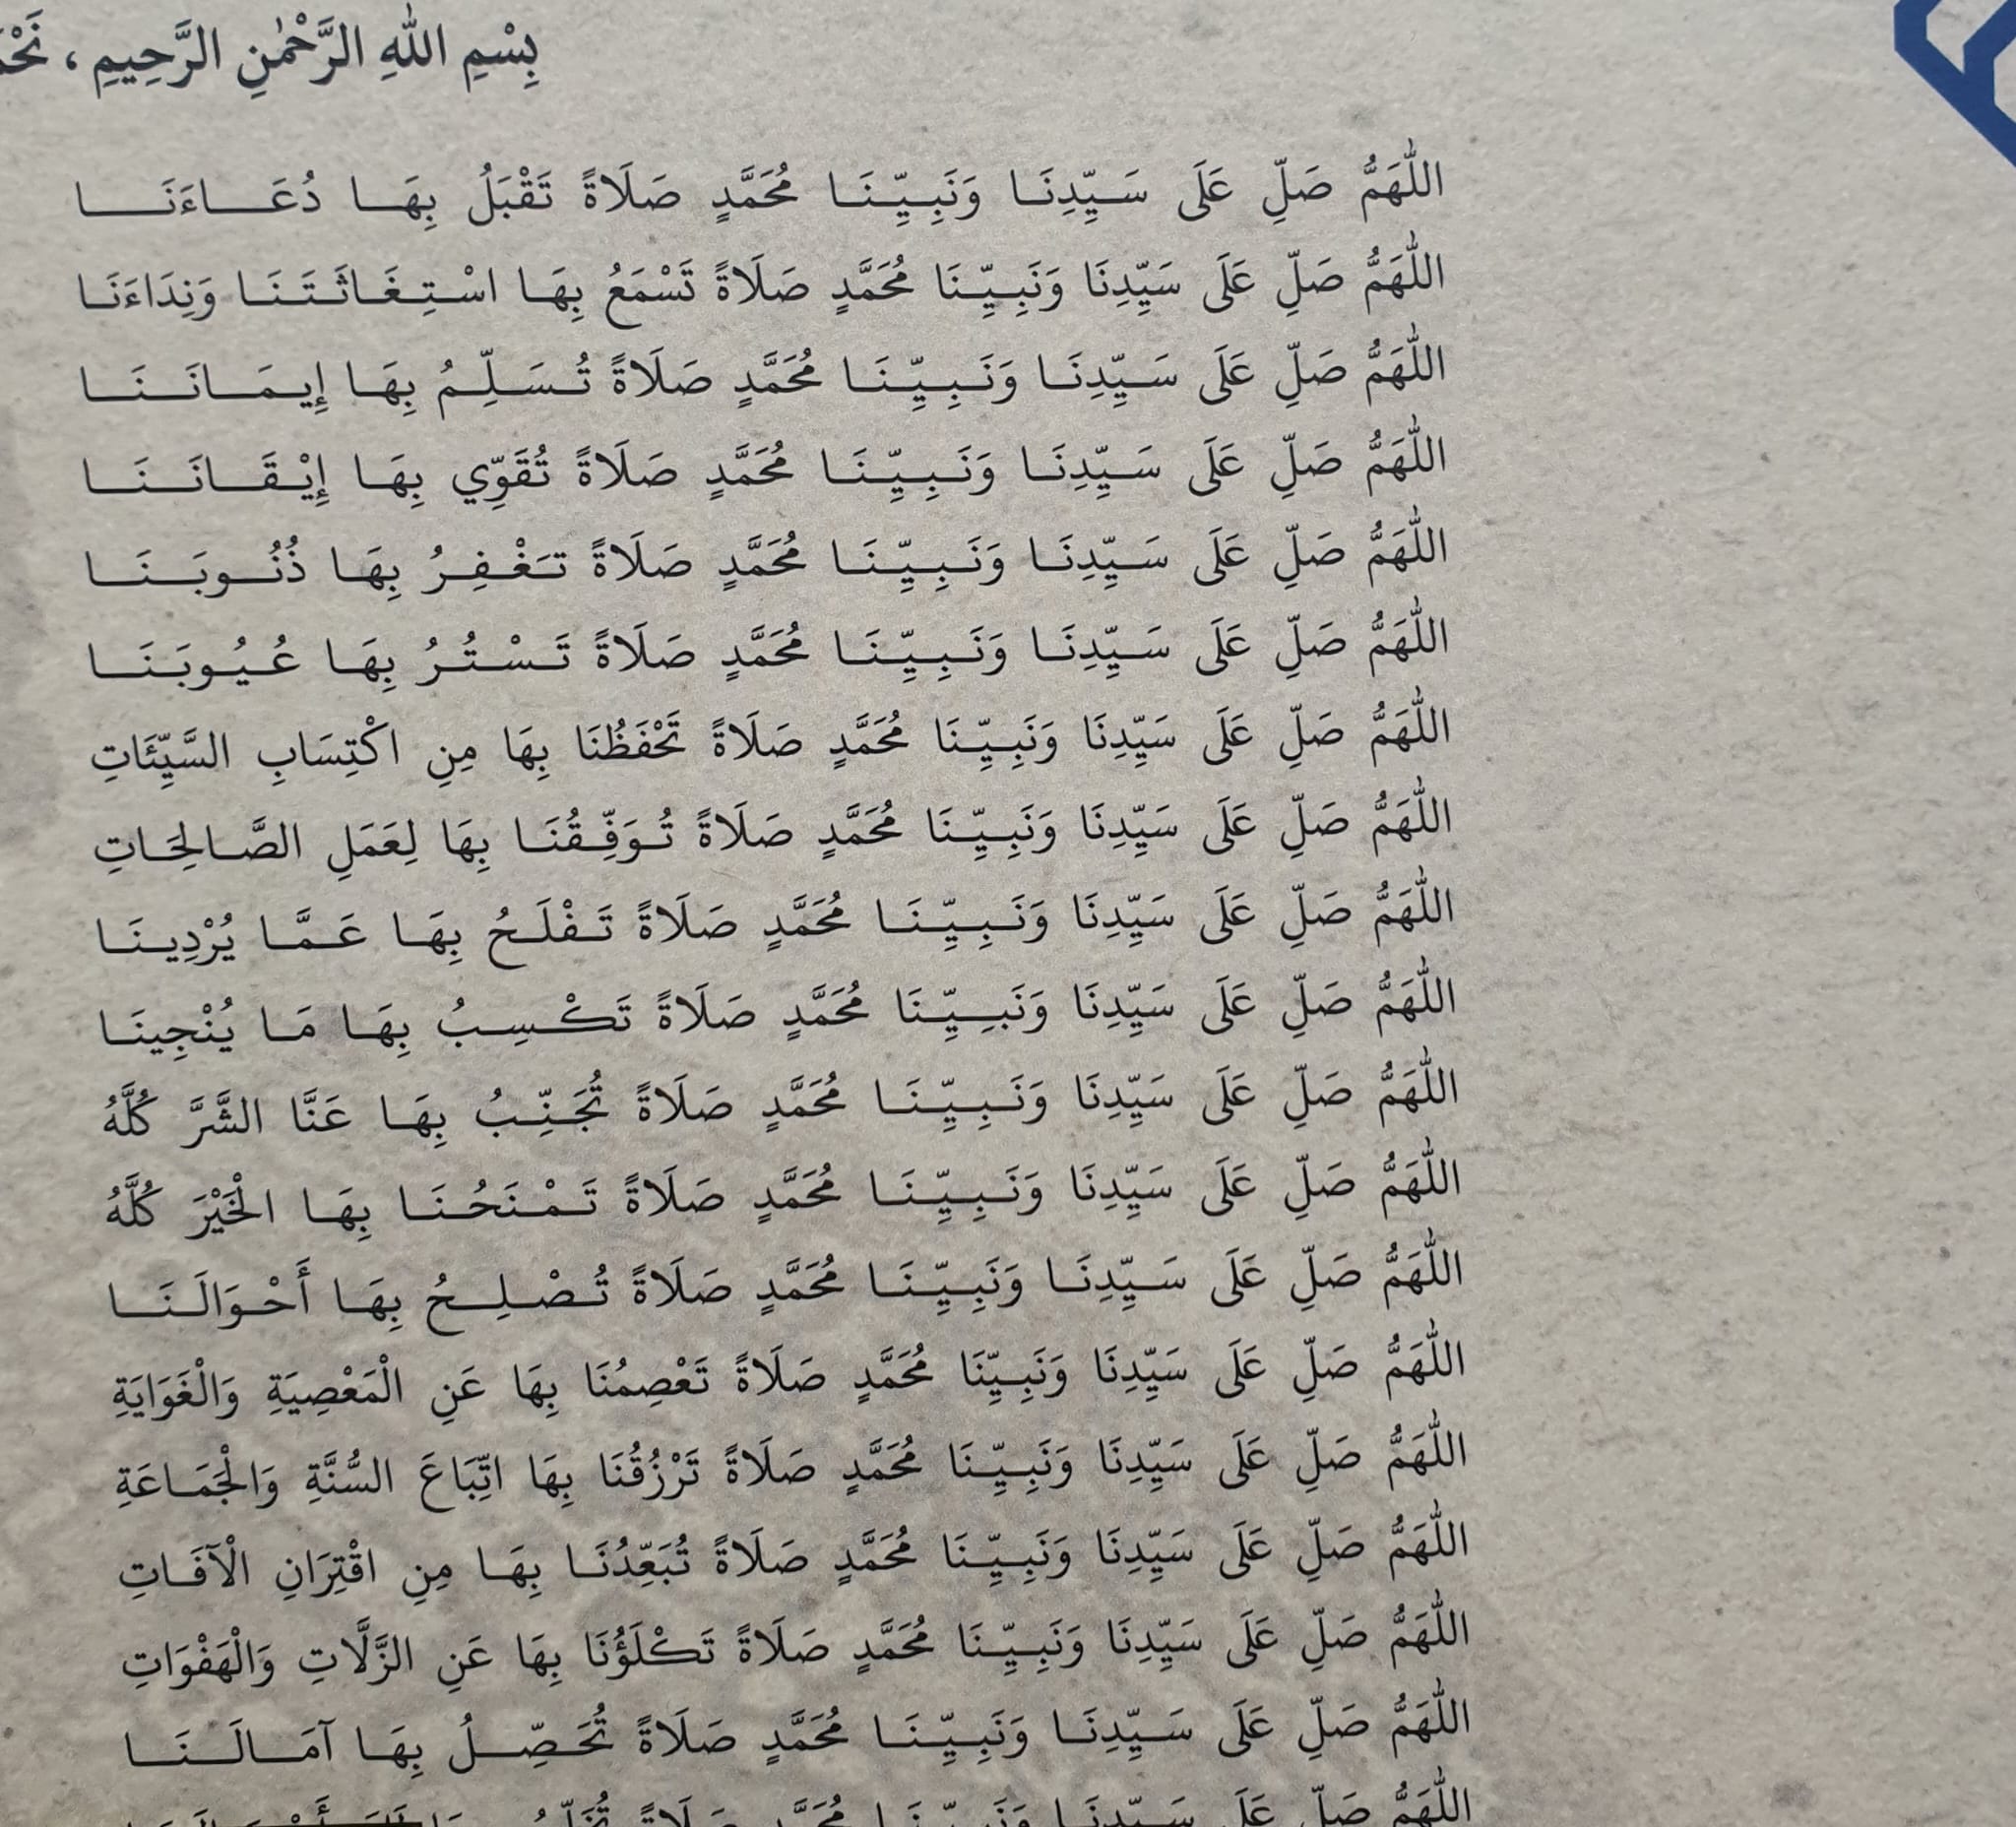 بِسْمِ اللهِ الرَّحْمٰنِ الرَّحِيمِ ،
اللّٰهُمَّ صَلِّ عَلَى سَيِّدِنَا وَنَبِيِّنَا مُحَمَّدٍ صَلَاةً تَقْبَلُ بِهَا دُعَاءَنَا
اللّٰهُمَّ صَلِّ عَلَى سَيِّدِنَا وَنَبِيِّنَا مُحَمَّدٍ صَلَاةً تَسْمَعُ بِهَا اسْتِغَاثَتَنَا وَنِدَاءَنَا
اللّٰهُمَّ صَلِّ عَلَى سَيِّدِنَا وَنَبِيِّنَا مُحَمَّدٍ صَلَاةً تُسَلِّمُ بِهَا إِيمَانَنَا
اللّٰهُمَّ صَلِّ عَلَى سَيِّدِنَا وَنَبِيِّنَا مُحَمَّدٍ صَلَاةً تُقَوِّي بِهَا إِيْقَانَنَا
اللّٰهُمَّ صَلِّ عَلَى سَيِّدِنَا وَنَبِيِّنَا مُحَمَّدٍ صَلَاةً تَغْفِرُ بِهَا ذُنُوبَنَا
اللّٰهُمَّ صَلِّ عَلَى سَيِّدِنَا وَنَبِيِّنَا مُحَمَّدٍ صَلَاةً تَسْتُرُ بِهَا عُيُوبَنَا
اللّٰهُمَّ صَلِّ عَلَى سَيِّدِنَا وَنَبِيِّنَا مُحَمَّدٍ صَلَاةً تَحْفَظُنَا بِهَا مِنِ اكْتِسَابِ السَّيِّئَاتِ
اللّٰهُمَّ صَلِّ عَلَى سَيِّدِنَا وَنَبِيِّنَا مُحَمَّدٍ صَلَاةً تُوَفِّقُنَا بِهَا لِعَمَلِ الصَّالِحَاتِ
اللّٰهُمَّ صَلِّ عَلَى سَيِّدِنَا وَنَبِيِّنَا مُحَمَّدٍ صَلَاةً تَفْلَحُ بِهَا عَمَّا يُرْدِينَا
اللّٰهُمَّ صَلِّ عَلَى سَيِّدِنَا وَنَبِيِّنَا مُحَمَّدٍ صَلَاةً تَكْسِبُ بِهَا مَا يُنْجِينَا
اللّٰهُمَّ صَلِّ عَلَى سَيِّدِنَا وَنَبِيِّنَا مُحَمَّدٍ صَلَاةً تُجَنِّبُ بِهَا عَنَّا الشَّرَّ كُلَّهُ
اللّٰهُمَّ صَلِّ عَلَى سَيِّدِنَا وَنَبِيِّنَا مُحَمَّدٍ صَلَاةً تَمْنَحُنَا بِهَا الْخَيْرَ كُلَّهُ
اللّٰهُمَّ صَلِّ عَلَى سَيِّدِنَا وَنَبِيِّنَا مُحَمَّدٍ صَلَاةً تُصْلِحُ بِهَا أَحْوَالَنَا
اللّٰهُمَّ صَلِّ عَلَى سَيِّدِنَا وَنَبِيِّنَا مُحَمَّدٍ صَلَاةً تَعْصِمُنَا بِهَا عَنِ الْمَعْصِيَةِ وَالْغَوَايَةِ
اللّٰهُمَّ صَلِّ عَلَى سَيِّدِنَا وَنَبِيِّنَا مُحَمَّدٍ صَلَاةً تَرْزُقُنَا بِهَا اتِّبَاعَ السُّنَّةِ وَالْجَمَاعَةِ
اللّٰهُمَّ صَلِّ عَلَى سَيِّدِنَا وَنَبِيِّنَا مُحَمَّدٍ صَلَاةً تُبَعِّدُنَا بِهَا مِنِ اقْتِرَانِ الْآفَاتِ
اللّٰهُمَّ صَلِّ عَلَى سَيِّدِنَا وَنَبِيِّنَا مُحَمَّدٍ صَلَاةً تَكْلَؤُنَا بِهَا عَنِ الزَّلَّاتِ وَالْهَفْوَاتِ
اللّٰهُمَّ صَلِّ عَلَى سَيِّدِنَا وَنَبِيِّنَا مُحَمَّدٍ صَلَاةً تُحَصِّلُ بِهَا آمَالَنَا
اللّٰهُمَّ صَلِّ عَلَى سَيِّدِنَا وَنَبِيِّنَا مُحَمَّدٍ صَلَاةً